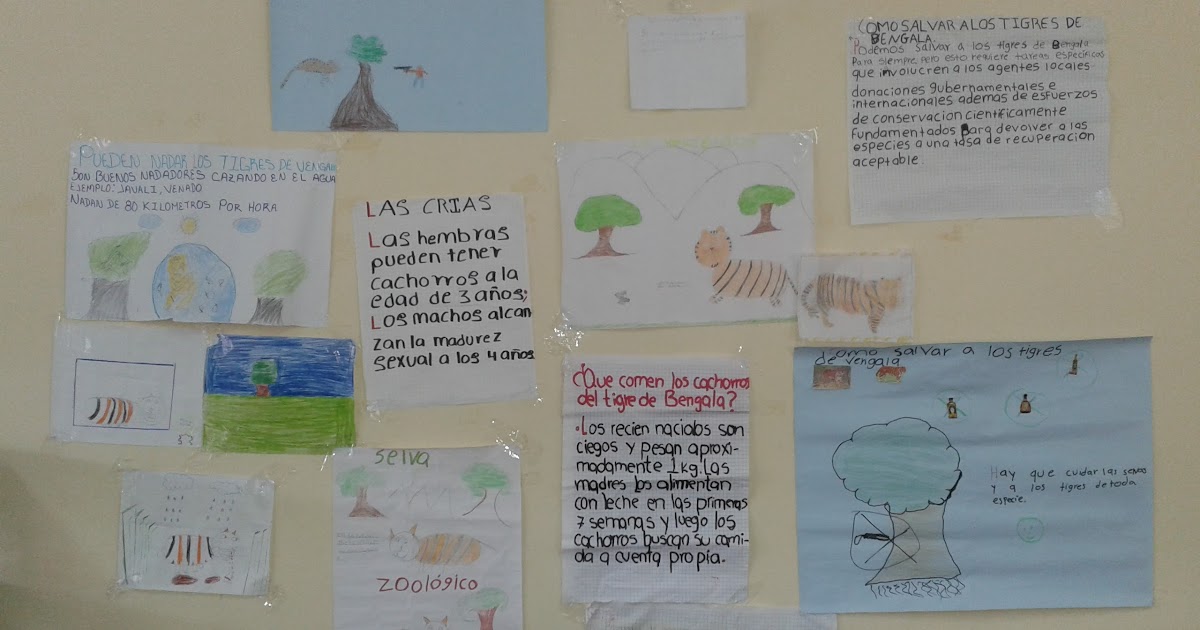 COMO SALVAR A LOS TIGRES DE
BENGALA.
Podemos salvar a los tigres de Bengala
Para siempre, pero esto requiere tareas especificas
que involucren a los agentes locales
donaciones gubernamentales e
internacionales además de esfuerzos
de conservacion científicamente
fundamentados para devolver a las
especies a una tasa de recuperación
aceptable.
PUEDEN NADAR LOS TIGRES DE VENGALA
SON BUENOS NADADORES CAZANDO EN EL AGUA
EJEMPLO: JAVALI, VENADO
NADAN DE 80 KILOMETROS POR HORA
LAS CRIAS
Las hembras
pueden tener
cachorros a la
edad de 3 años;
Los machos alcan
zan la madurez
sexual a los 4 años
¿Que comen los cachorros
del tigre de Bengala?
·Los recien nacidos son
ciegos y pesan aproxi-
madamente 1 kg. Las
madres los alimentan
con leche en las primeras
7 semanas y luego los
cachorros buscan su comi-
da a cuenta propia.
como salvar a los tigres
de vengala
Hay que cuidar las selvas
y a los tigres de toda
especie.
selva
zoológico